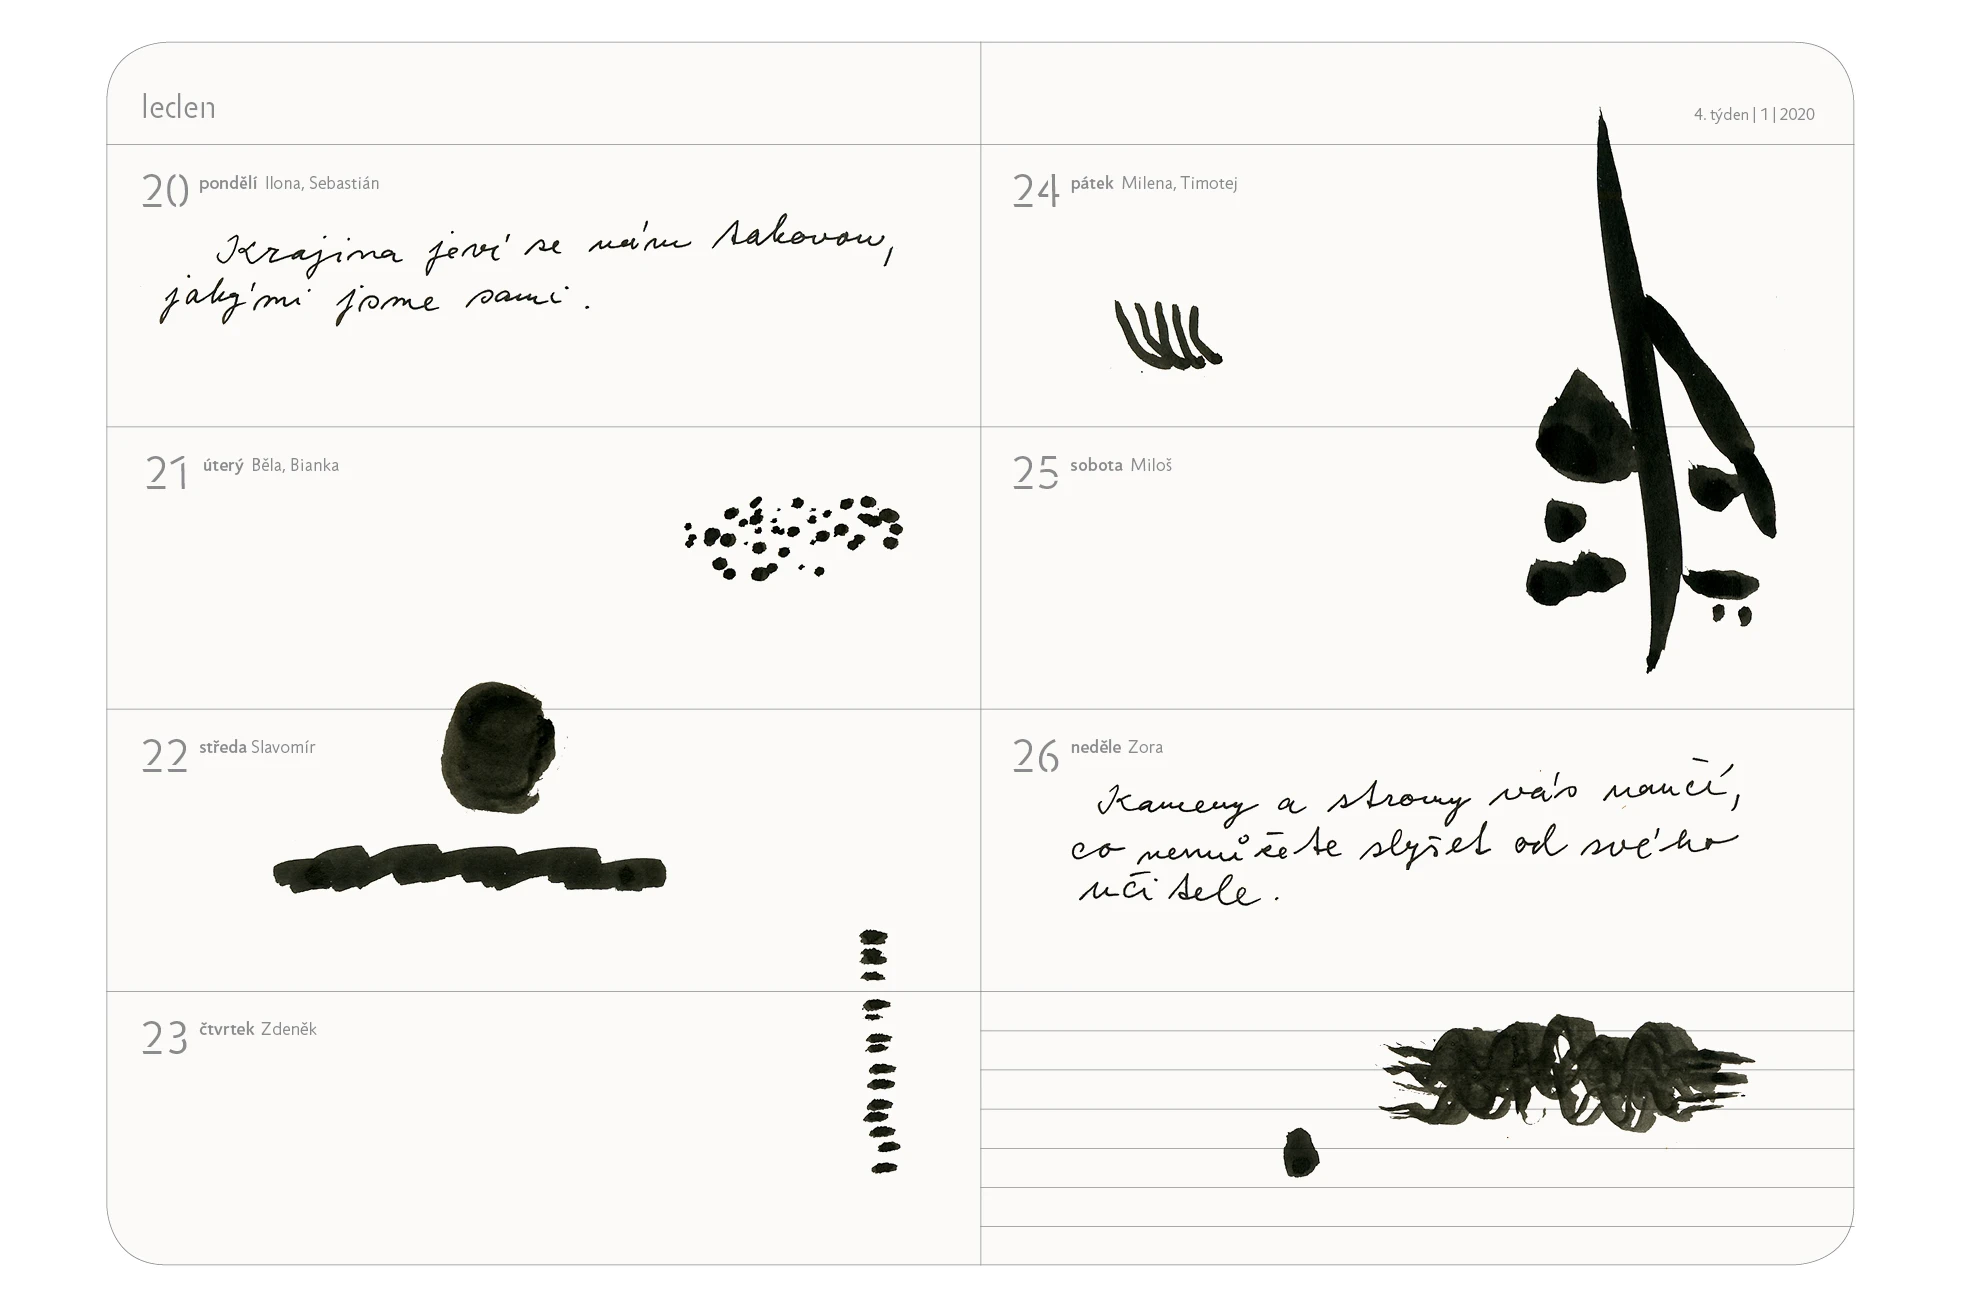 leden
4. týden | 1 | 2020
20 pondělí Ilona, Sebastián
Krajina jeví se nám takovou,
jakými jsme sami.
21 úterý Běla, Bianka
22 středa Slavomír
23 čtvrtek Zdeněk
24 pátek Milena, Timotej
25 sobota Miloš
26 neděle Zora
Kameny a stromy vás naučí,
co nemůžete slyšet od svého
učitele.